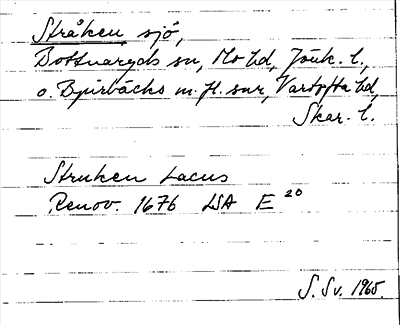 Stråken, sjö,
Bottnaryds sn, Mo hd, Jönk. l.,
o. Bjurbäcks m. fl. snr, Vartofta hd,
Skar. l.
Struken Lacus
Renov. 1676 LSA E 20
S. Sv. 1965.